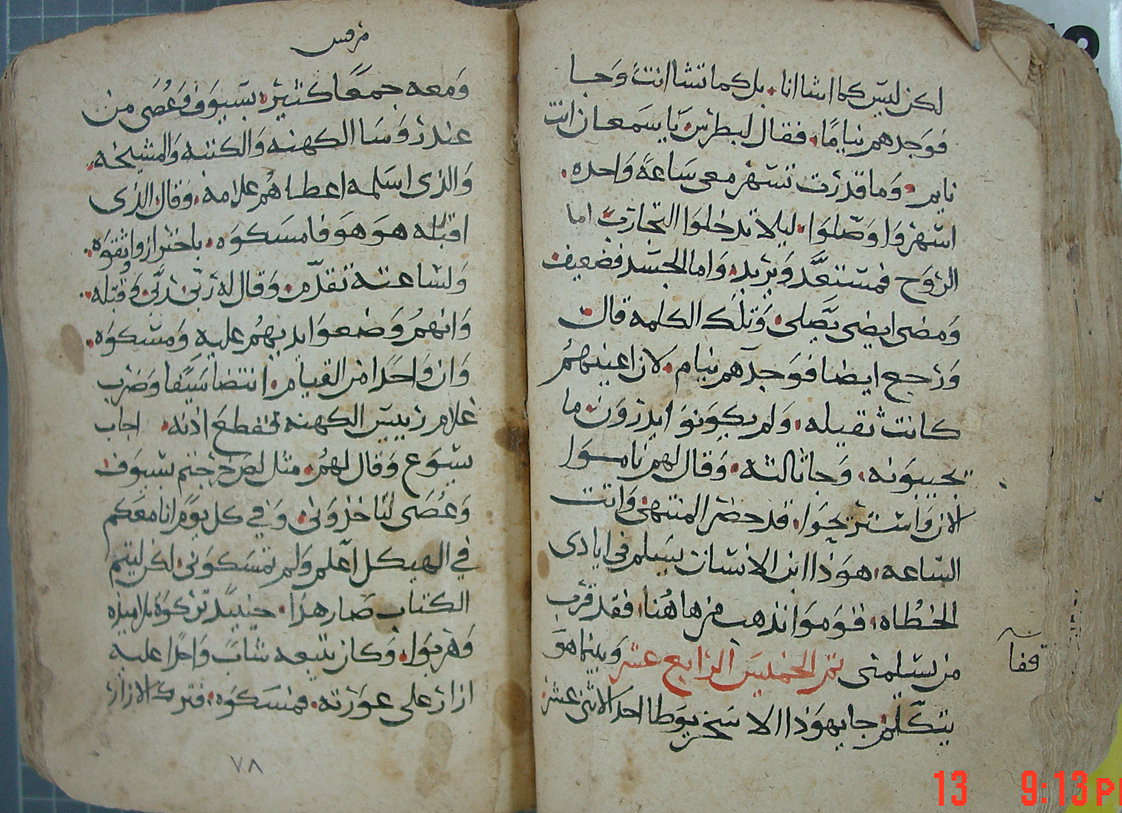 لكن ليس كما اشا انا. بل كما تشا انت وجا
فوجدهم نيامًا. فقال لبطرس يا سمعان انت
نايم. وما قدرت تسهر معي ساعة واحده.
اسهروا وصلوا. ليلا تدخلوا التجارب اما
الروح فمستعد ويريد. واما الجسد فضعيف
ومضى ايضى يصلى. وتلك الكلمه قال
ورجع ايضا فوجدهم نيام. لان اعينهم
كانت ثقيله. ولم يكونوا يدرون ما
يجيبونه. وجا ثالثه. وقال لهم ناموا
الان واستريحوا. قد حضر المنتهى واتت
الساعه. هوذا ابن الانسان يسلم في ايادى
الخطاه. قوموا نذهب من هاهنا. فقد قرب
من يسلمنى تم الخميس الرابع عشر وبينما هو
يتكلم. جا يهوذا الاسخريوطا احد الاثنى عشر
قفا
مرقس
ومعه جمعًا كثير. بسيوف وعُصَى من
عند روسا الكهنه والكتبه والمشيخه.
والذى اسلمه اعطاهم علامه. وقال الذى
اقبله هو هو فامسكوه. باحتراز واثقوه.
ولساعته تقدم. وقال له ربّى ربّى وقبله
وانهم وضعوا ايديهم عليه ومسكوه.
وان واحدا من القيام. انتضا سيفا وضرب
غلام رييس الكهنه فقطع اذنه. اجاب
يسوع وقال لهم. مثل لص خرجتم بسيوف
وعُصَى لتاخذونى. وفي كل يوم انا معكم
في الهيكل اعلم ولم تمسكونى. لكن ليتم
الكتاب صار هذا. حينيد تركوه تلاميذه
وهربوا. وكان تبعه شاب واحدا عليه
ازار على عورته. فمسكوه. فترك الازار
٧٨
13 9:13 PM